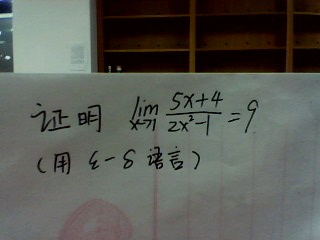 证明 lim x→1 (5x+4)/(2x²-1) = 9
(用 ε-δ 语言)